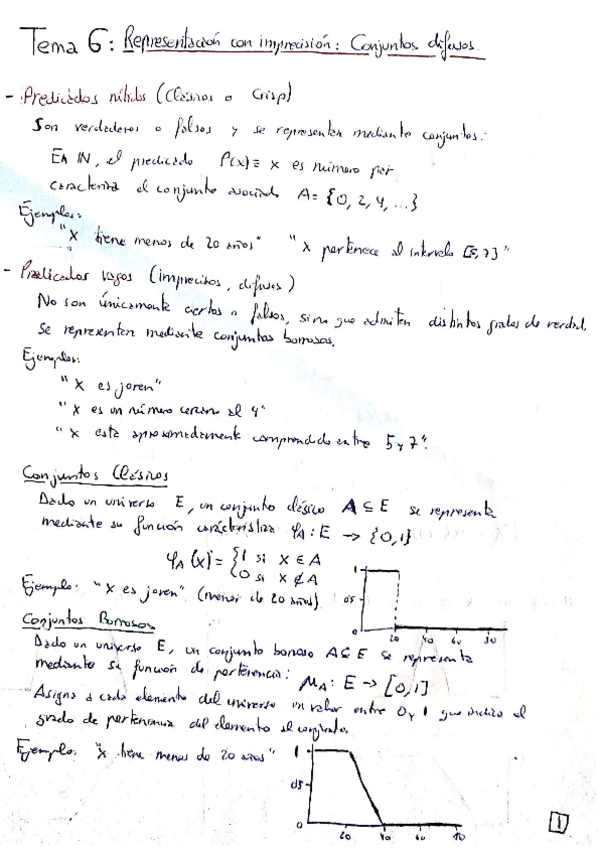 Tema 6: Representación con imprecisión: Conjuntos difusos.
- Predicados nítidos (Clásicos o Crisp)
Son verdaderos o falsos y se representan mediante conjuntos.
En IN, el predicado P(x) ≡ x es número par
caracteriza el conjunto asociado A = {0, 2, 4, ...}
Ejemplos:
"X tiene menos de 20 años" "X pertenece al intervalo [5,7]"
- Predicados vagos (imprecisos, difusos)
No son únicamente ciertos o falsos, sino que admiten distintos grados de verdad.
Se representan mediante conjuntos borrosos.
Ejemplos:
"X es joven"
"X es un número cercano al 4"
"X está aproximadamente comprendido entre 5 y 7".
Conjuntos Clásicos
Dado un universo E, un conjunto clásico A ⊆ E se representa
mediante su función característica φA : E → {0,1}
φA (x) = {1 si x ∈ A
0 si x ∉ A
Ejemplo: "X es joven" (menor de 20 años)
1
05
0
20 40 60
Conjuntos Borrosos
Dado un universo E, un conjunto borroso A ⊆ E se representa
mediante su función de pertenencia: μA : E → [0,1]
Asigna a cada elemento del universo un valor entre 0 y 1 que indica el
grado de pertenencia del elemento al conjunto.
Ejemplo: "X tiene menos de 20 años"
1
05
0
20 40 60
1